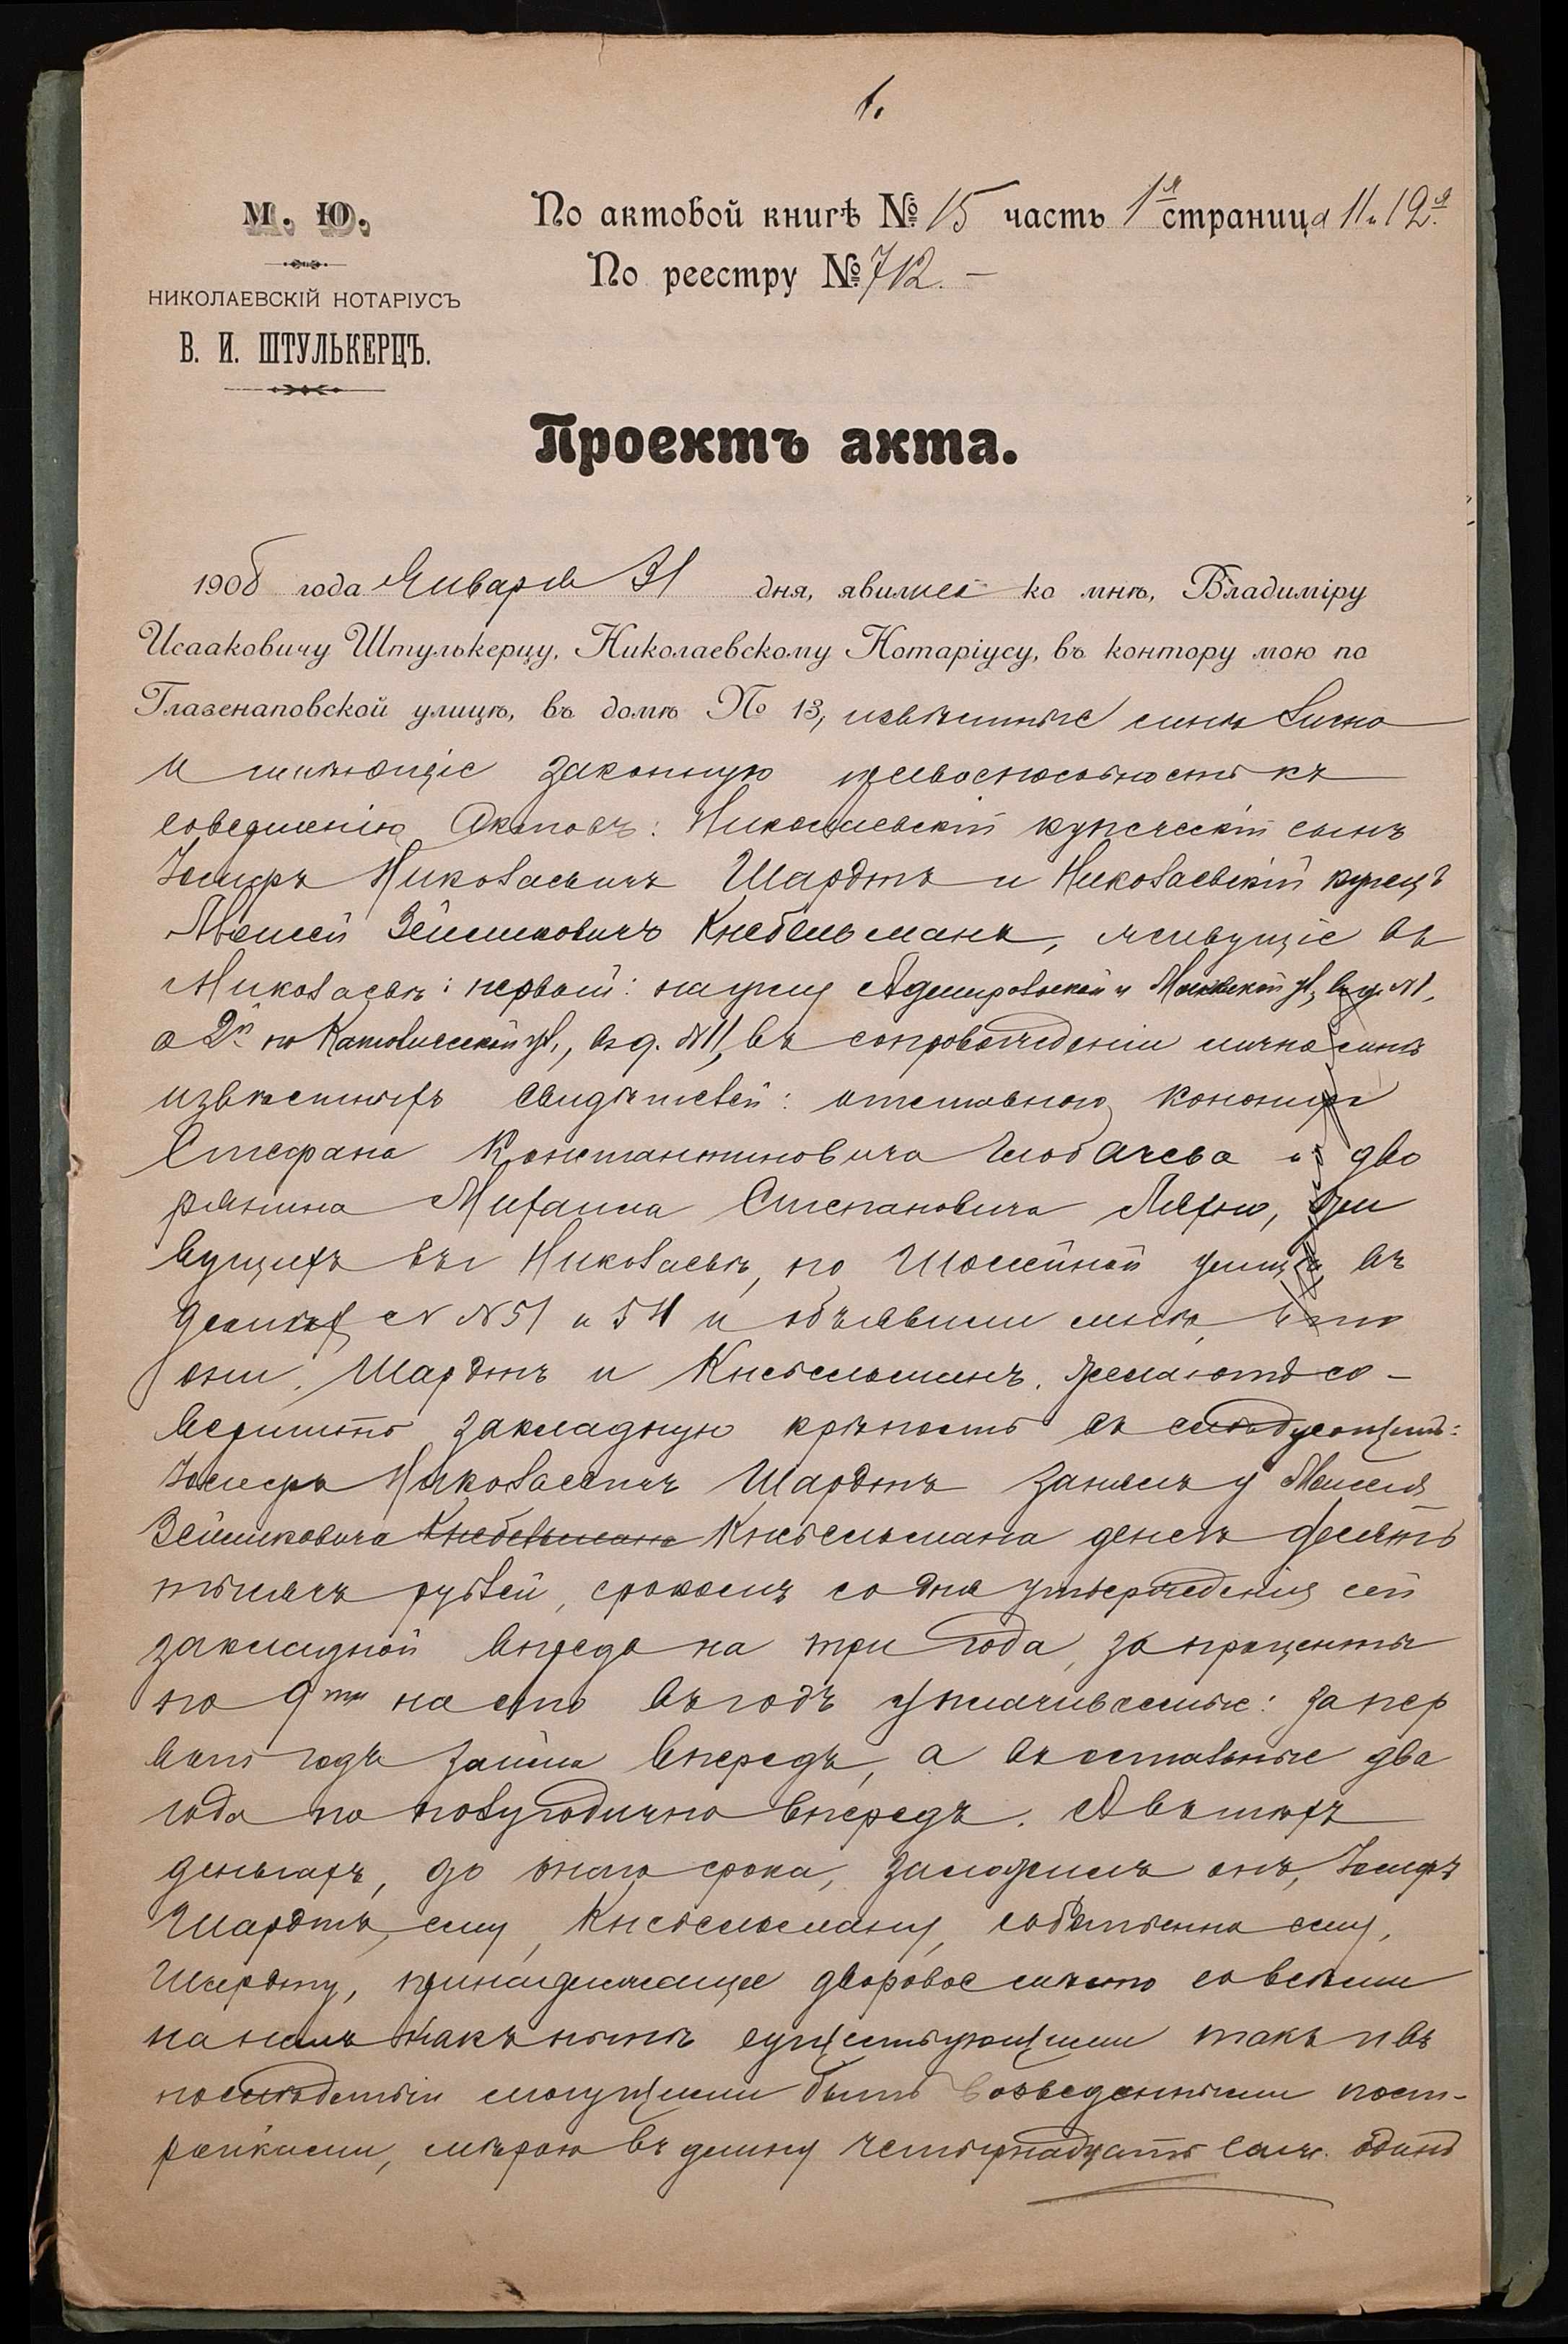 1.
М. Ю.
По актовой книгѣ № 15 часть 1я страница 11 и 12я
По реестру № 712. —
НИКОЛАЕВСКІЙ НОТАРІУСЪ
В. И. ШТУЛЬКЕРЦЪ.
Проектъ акта.
1908 года Января 31 дня, явились ко мнѣ, Владиміру
Исааковичу Штулькерцу, Николаевскому Нотаріусу, въ контору мою по
Глазенаповской улицѣ, въ домѣ № 13, извѣстные мнѣ лично
и имѣющіе законную правоспособность къ
совершенію актовъ: Николаевскій купеческій сынъ
Іосифъ Николаевичъ Шардтъ и Николаевскій купецъ
Моисей Зейликовичъ Кнебельманъ, живущіе въ
Николаевѣ: первый: на углу и Московской ул, въ д. №1,
а 2й по Католической ул., въ д. №11, въ сопровожденіи лично мнѣ
извѣстныхъ свидѣтелей:
Стефана Константиновича и дво
рянина Михаила Степановича жи
вущихъ въ Николаевѣ, по улицѣ, въ
домахъ №№ 51 и 54 и объявили мнѣ, что
они, Шардтъ и Кнебельманъ, желаютъ со-
вершить закладную крѣпость въ слѣдующемъ:
Іосифъ Николаевичъ Шардтъ занялъ у Моисея
Зейликовича Кнебельмана Кнебельмана денегъ десять
тысячъ рублей, срокомъ со дня утвержденія сей
закладной впредь на три года, за проценты
по 9ти на сто въ годъ уплачиваемые: за пер
вый годъ займа впередъ, а въ остальные два
года по полугодично впередъ. А въ тѣхъ
деньгахъ, до онаго срока, заложилъ онъ, Іосифъ
Шардтъ, ему, Кнебельману, собственно ему,
Шардту, принадлежащее дворовое мѣсто со всѣми
на немъ какъ нынѣ существующими такъ и въ
послѣдствіи могущими быть возведенными пост-
ройками, мѣрою въ длину четырнадцать саж. одинъ